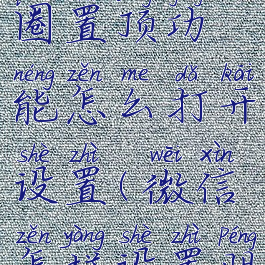 圈置顶功
néng zěn me dǎ kāi
能怎么打开
shè zhì wēi xìn
设置(微信
zěn yàng shè zhì péng